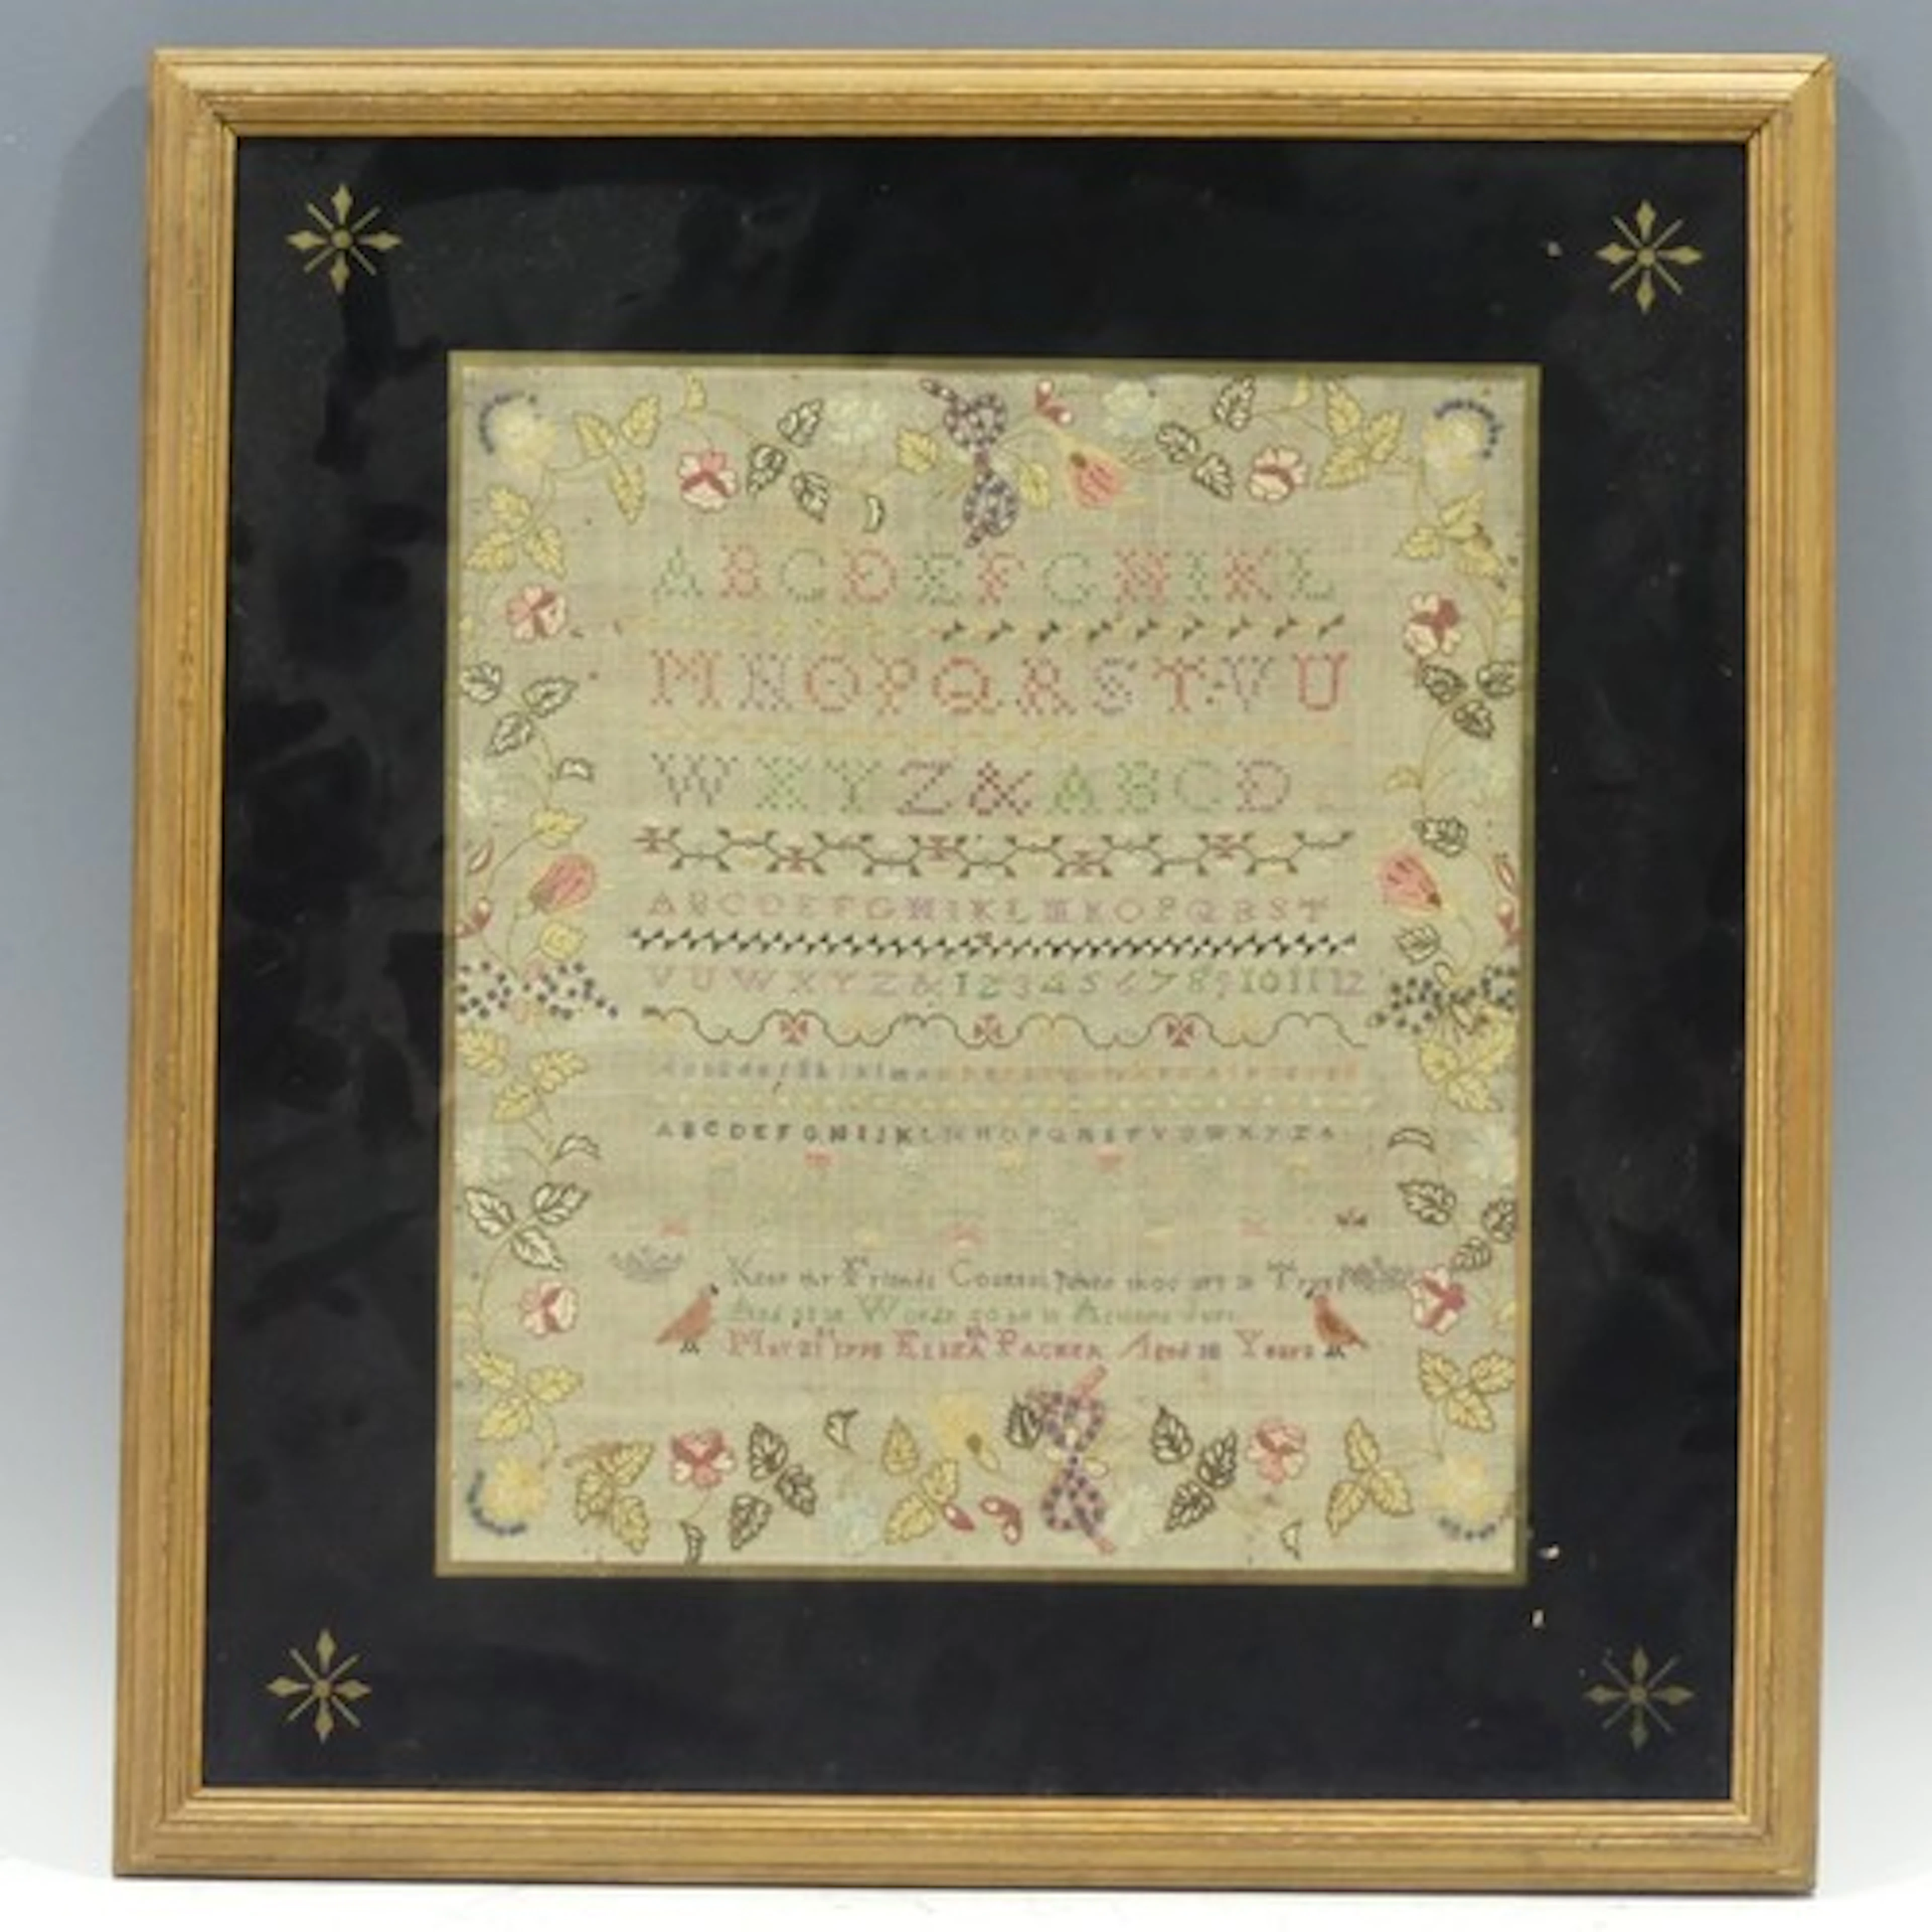 ABCDEFGHIKL
MNOPQRSTVU
WXYZ&ABCD
ABCDEFGHIKLMNOPQRST
VUWXYZ&123456789101112
ABCDEFGHIJKLMNOPQRSTVUWXYZ&
Keep thy Friends Counsel when thou art in
And as in Words so be in Actions
May 21 ELIZA PACKER Aged 10 Years